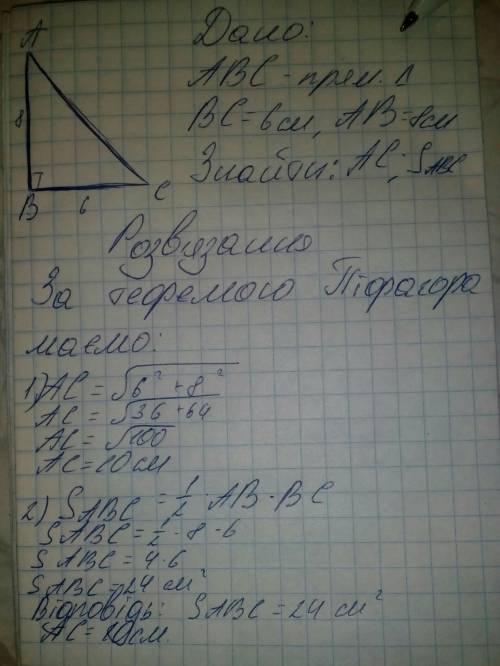 A
Дано:
ABC - прям. Δ
8
BC = 6 см, AB = 8 см
Знайти: AC; S ABC
B
6
C
Розвязання
За теоремою Піфагора
маємо:
1) AC = √6² + 8²
AC = √36 + 64
AC = √100
AC = 10 см
2) S ABC = 1/2 · AB · BC
S ABC = 1/2 · 8 · 6
S ABC = 4 · 6
S ABC = 24 см²
Відповідь: S ABC = 24 см²
AC = 10 см.